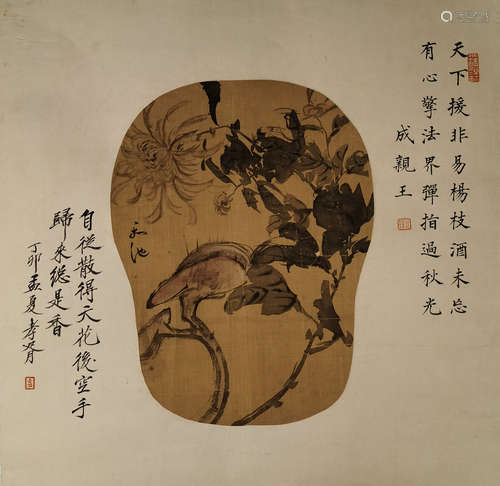 天下援非易楊枝洒未忘
有心擎法界彈指過秋光
成親王
天池
自從散得天花後空手
歸來總是香
丁卯孟夏孝胥